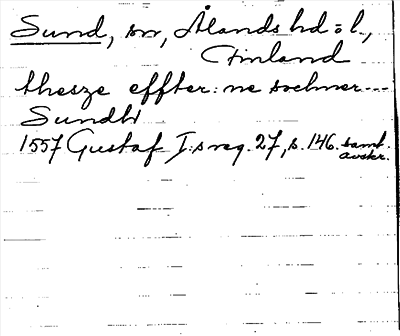 Sund, sn, Ålands hd o l.,
Finland
thesze effter:ne sochner---
Sundh
1557 Gustaf I:s reg. 27, s. 146. samt.
avskr.